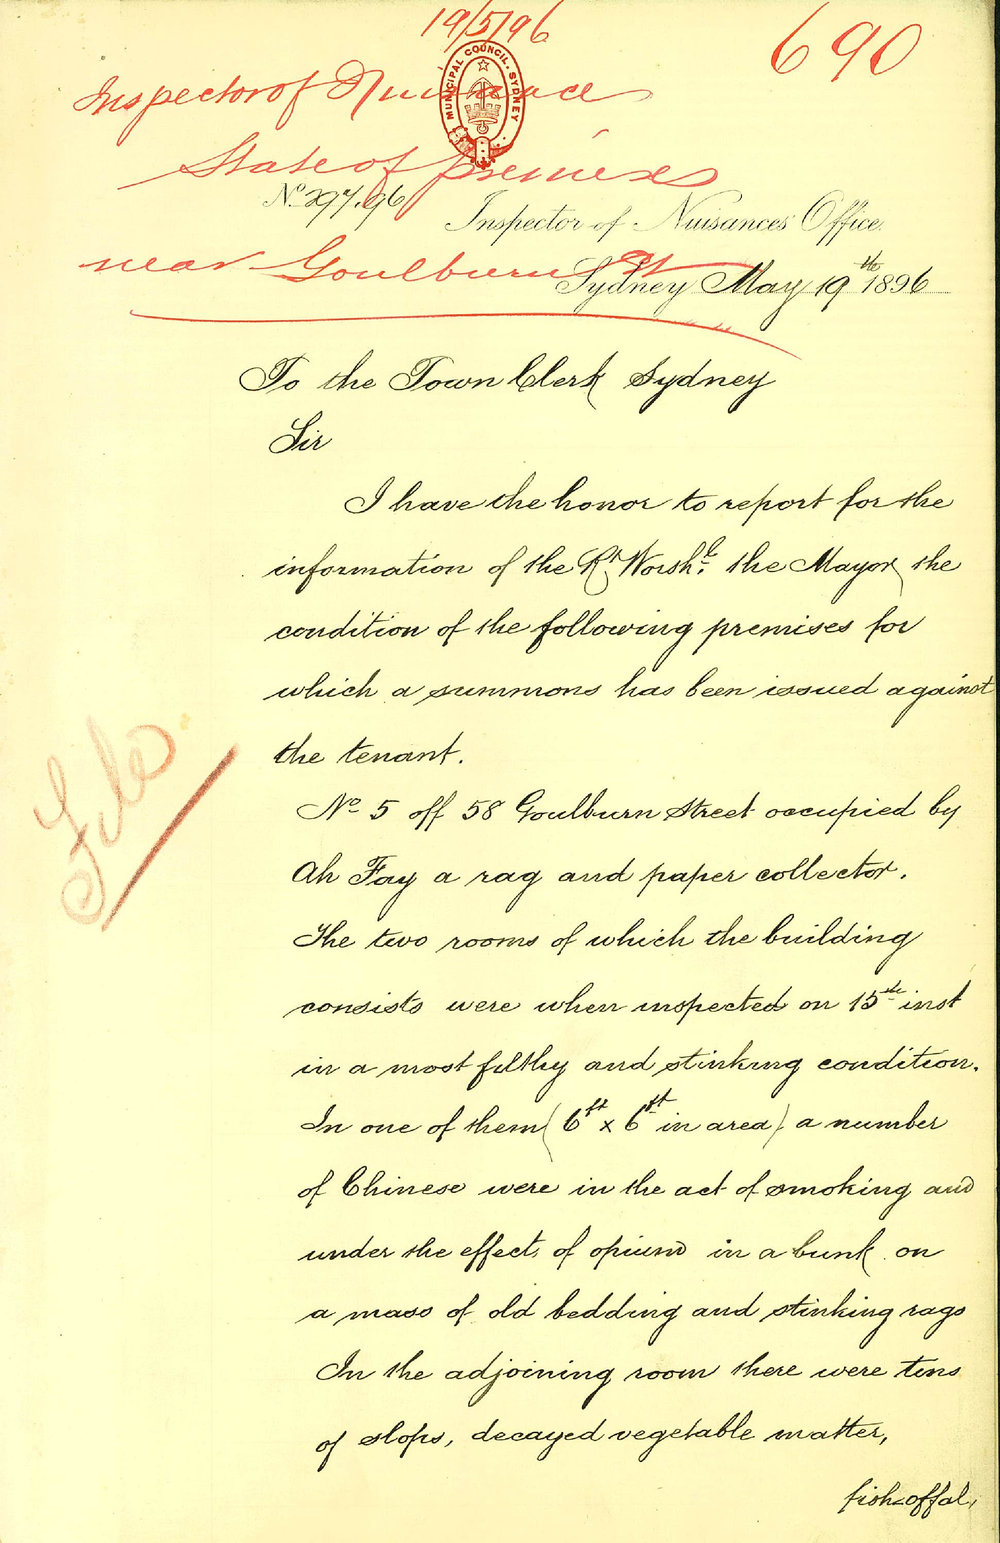 19/5/96
690
MUNICIPAL COUNCIL. SYDNEY
Inspector of Nuisance
State of premises
No. 297.96
Inspector of Nuisances' Office.
near Goulburn St
Sydney May 19th 1896
To the Town Clerk Sydney
Sir
I have the honor to report for the
information of the Rt. Worshl. the Mayor the
condition of the following premises for
which a summons has been issued against
the tenant.
No 5 off 58 Goulburn Street occupied by
Ah Fay a rag and paper collector.
The two rooms of which the building
consists were when inspected on 15th inst
in a most filthy and stinking condition.
In one of them (6ft x 6ft in area) a number
of Chinese were in the act of smoking and
under the effects of opium in a bunk on
a mass of old bedding and stinking rags
In the adjoining room there were tins
of slops, decayed vegetable matter,
fish-offal,
File